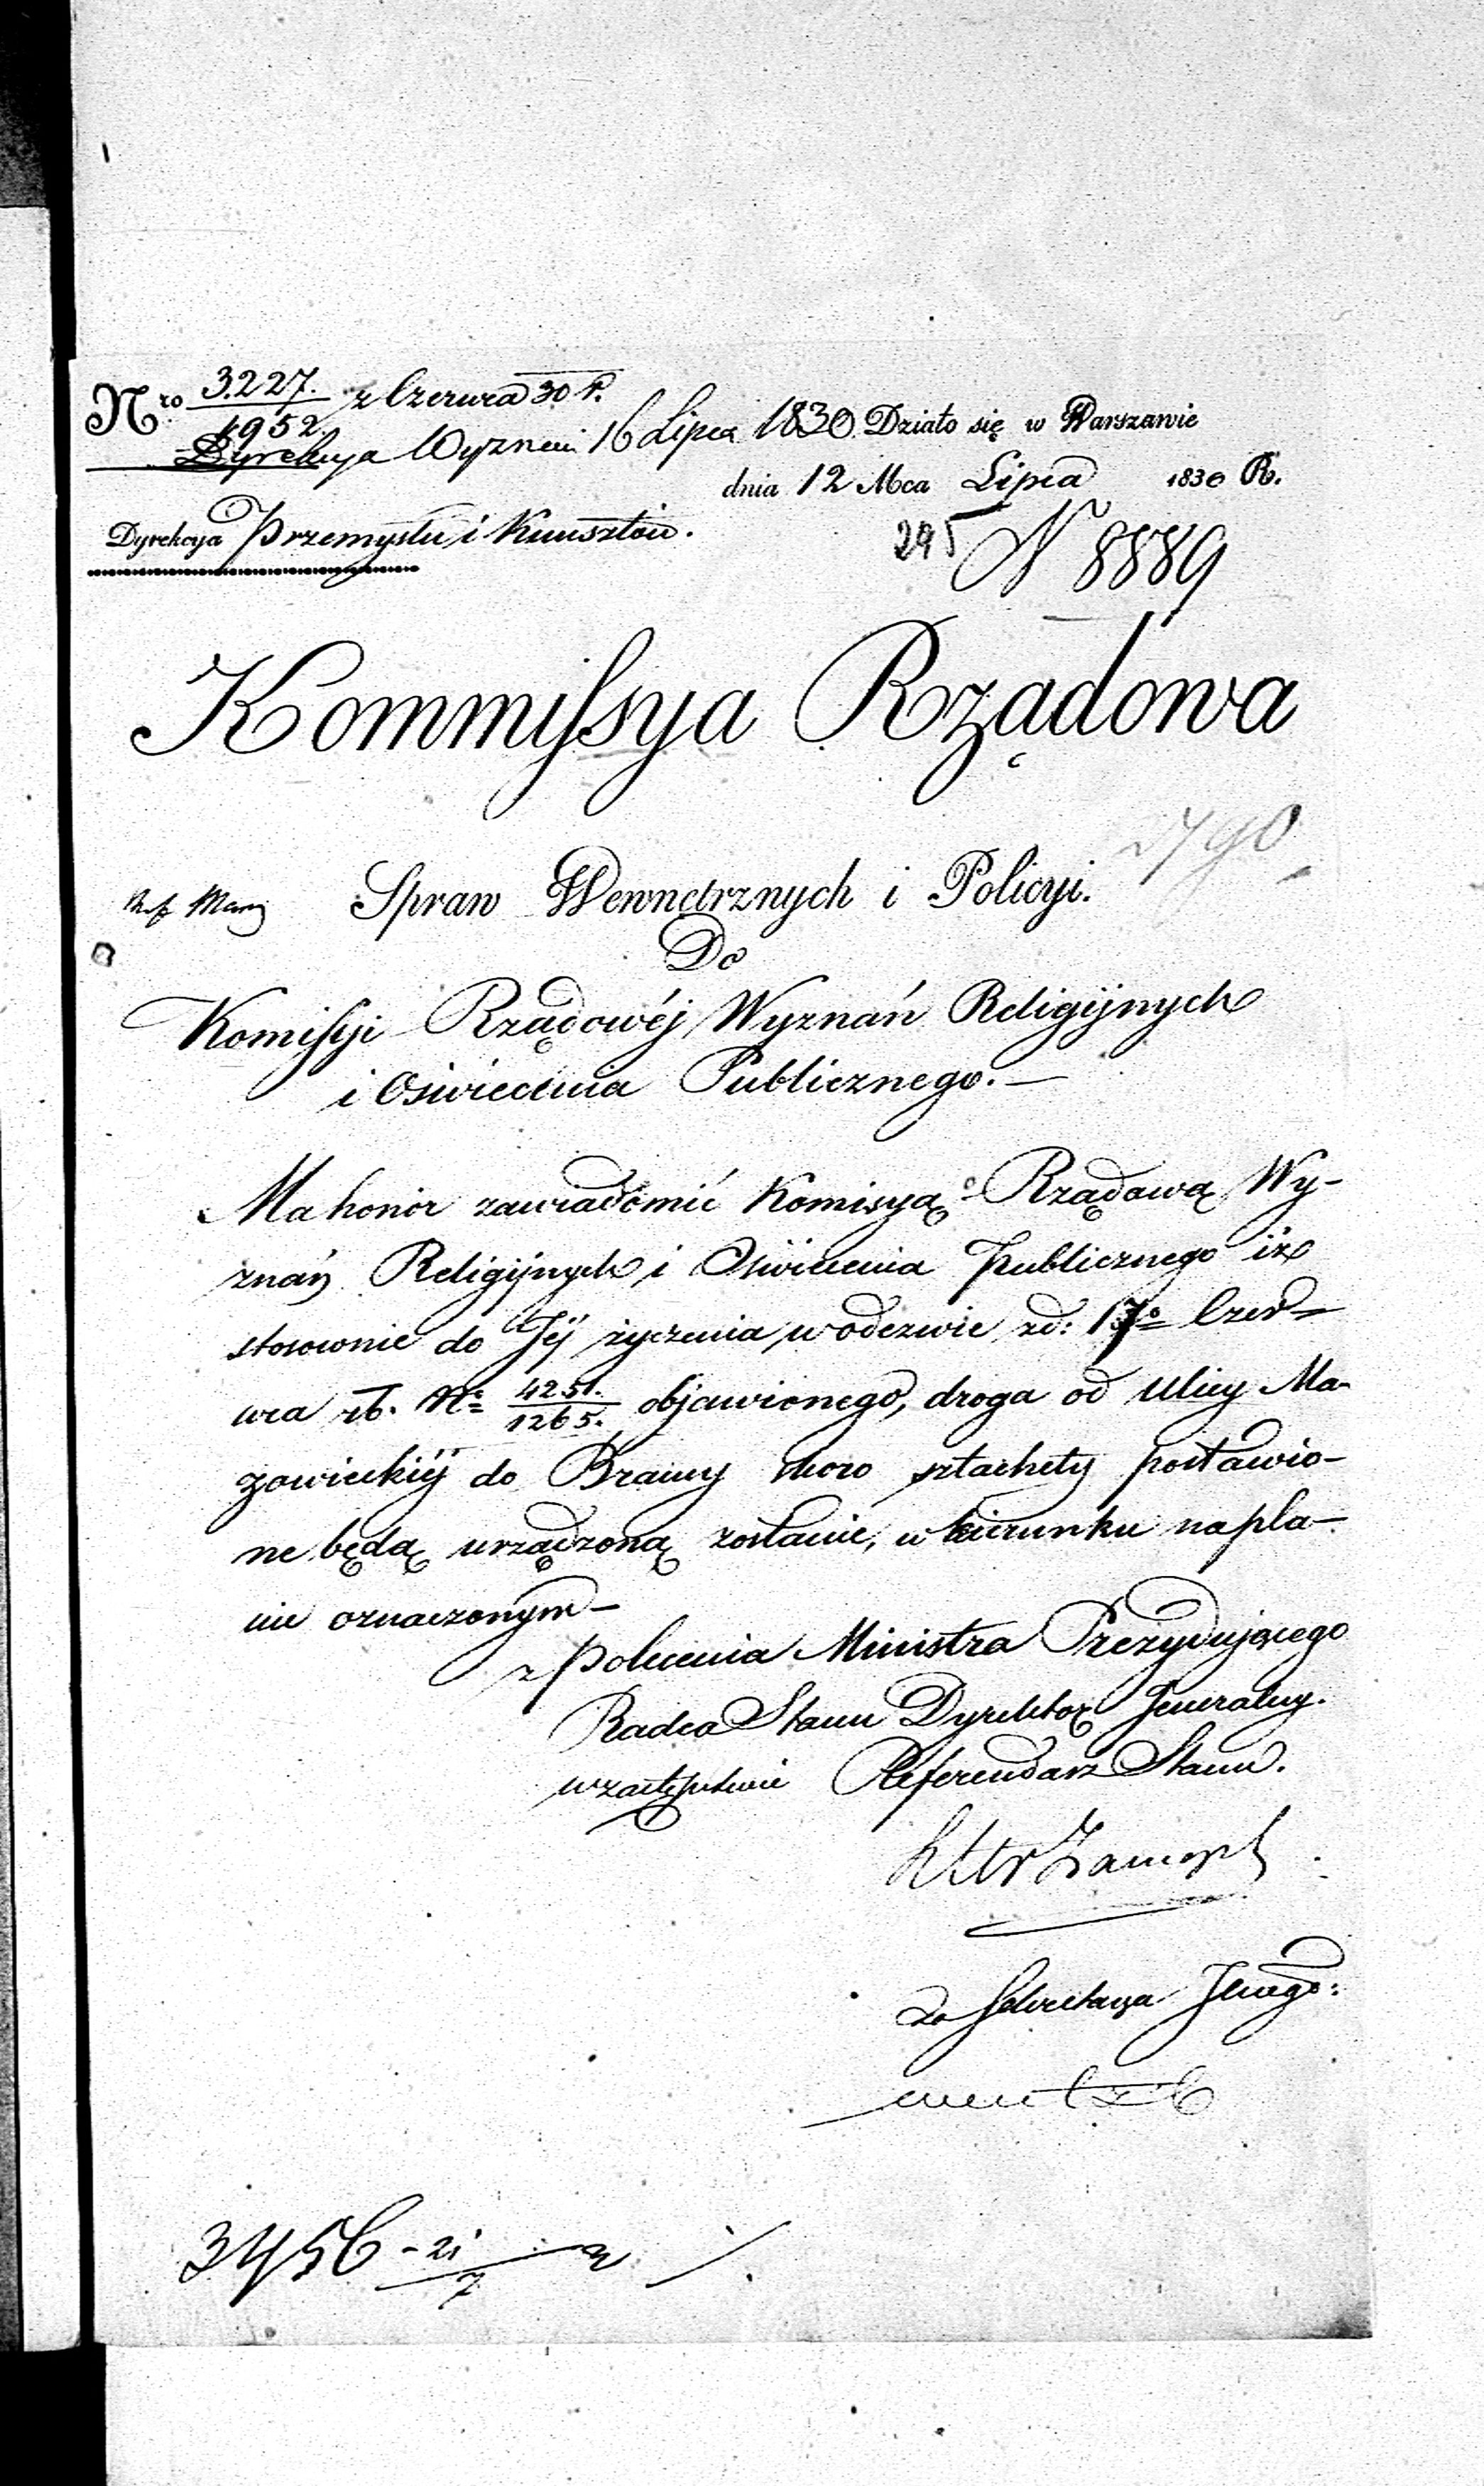 Nro 3227. z Czerwca 30 r.
1952.
Dyrekcya Wyznań 16 Lipca 1830 Działo się w Warszawie
dnia 12 Mca Lipca 1830 R.
Dyrekcya Przemysłu i Kunsztów.
295 N 8889
Kommissya Rządowa
Spraw Wewnętrznych i Policyi.
Do
Komissyi Rządowéj Wyznań Religijnych
i Oświecenia Publicznego.—
Ma honor zawiadomić Komisyą Rządową Wy-
znań Religijnych i Oświecenia Publicznego iż
stosownie do Jéj życzenia w odezwie zd: 17o Czer-
wca rb. No 4251./1265. objawionego, droga od Ulicy Ma-
zowieckiéj do Bramy skoro sztachety postawio-
ne będą urządzoną zostanie, w kierunku na pla-
nie oznaczonym—
z polecenia Ministra Prezydującego
Radca Stanu Dyrektor Jeneralny.
w zastępstwie Referendarz Stanu.
Zamoyski
za Sekretarza Jenego:
3456 - 21/7